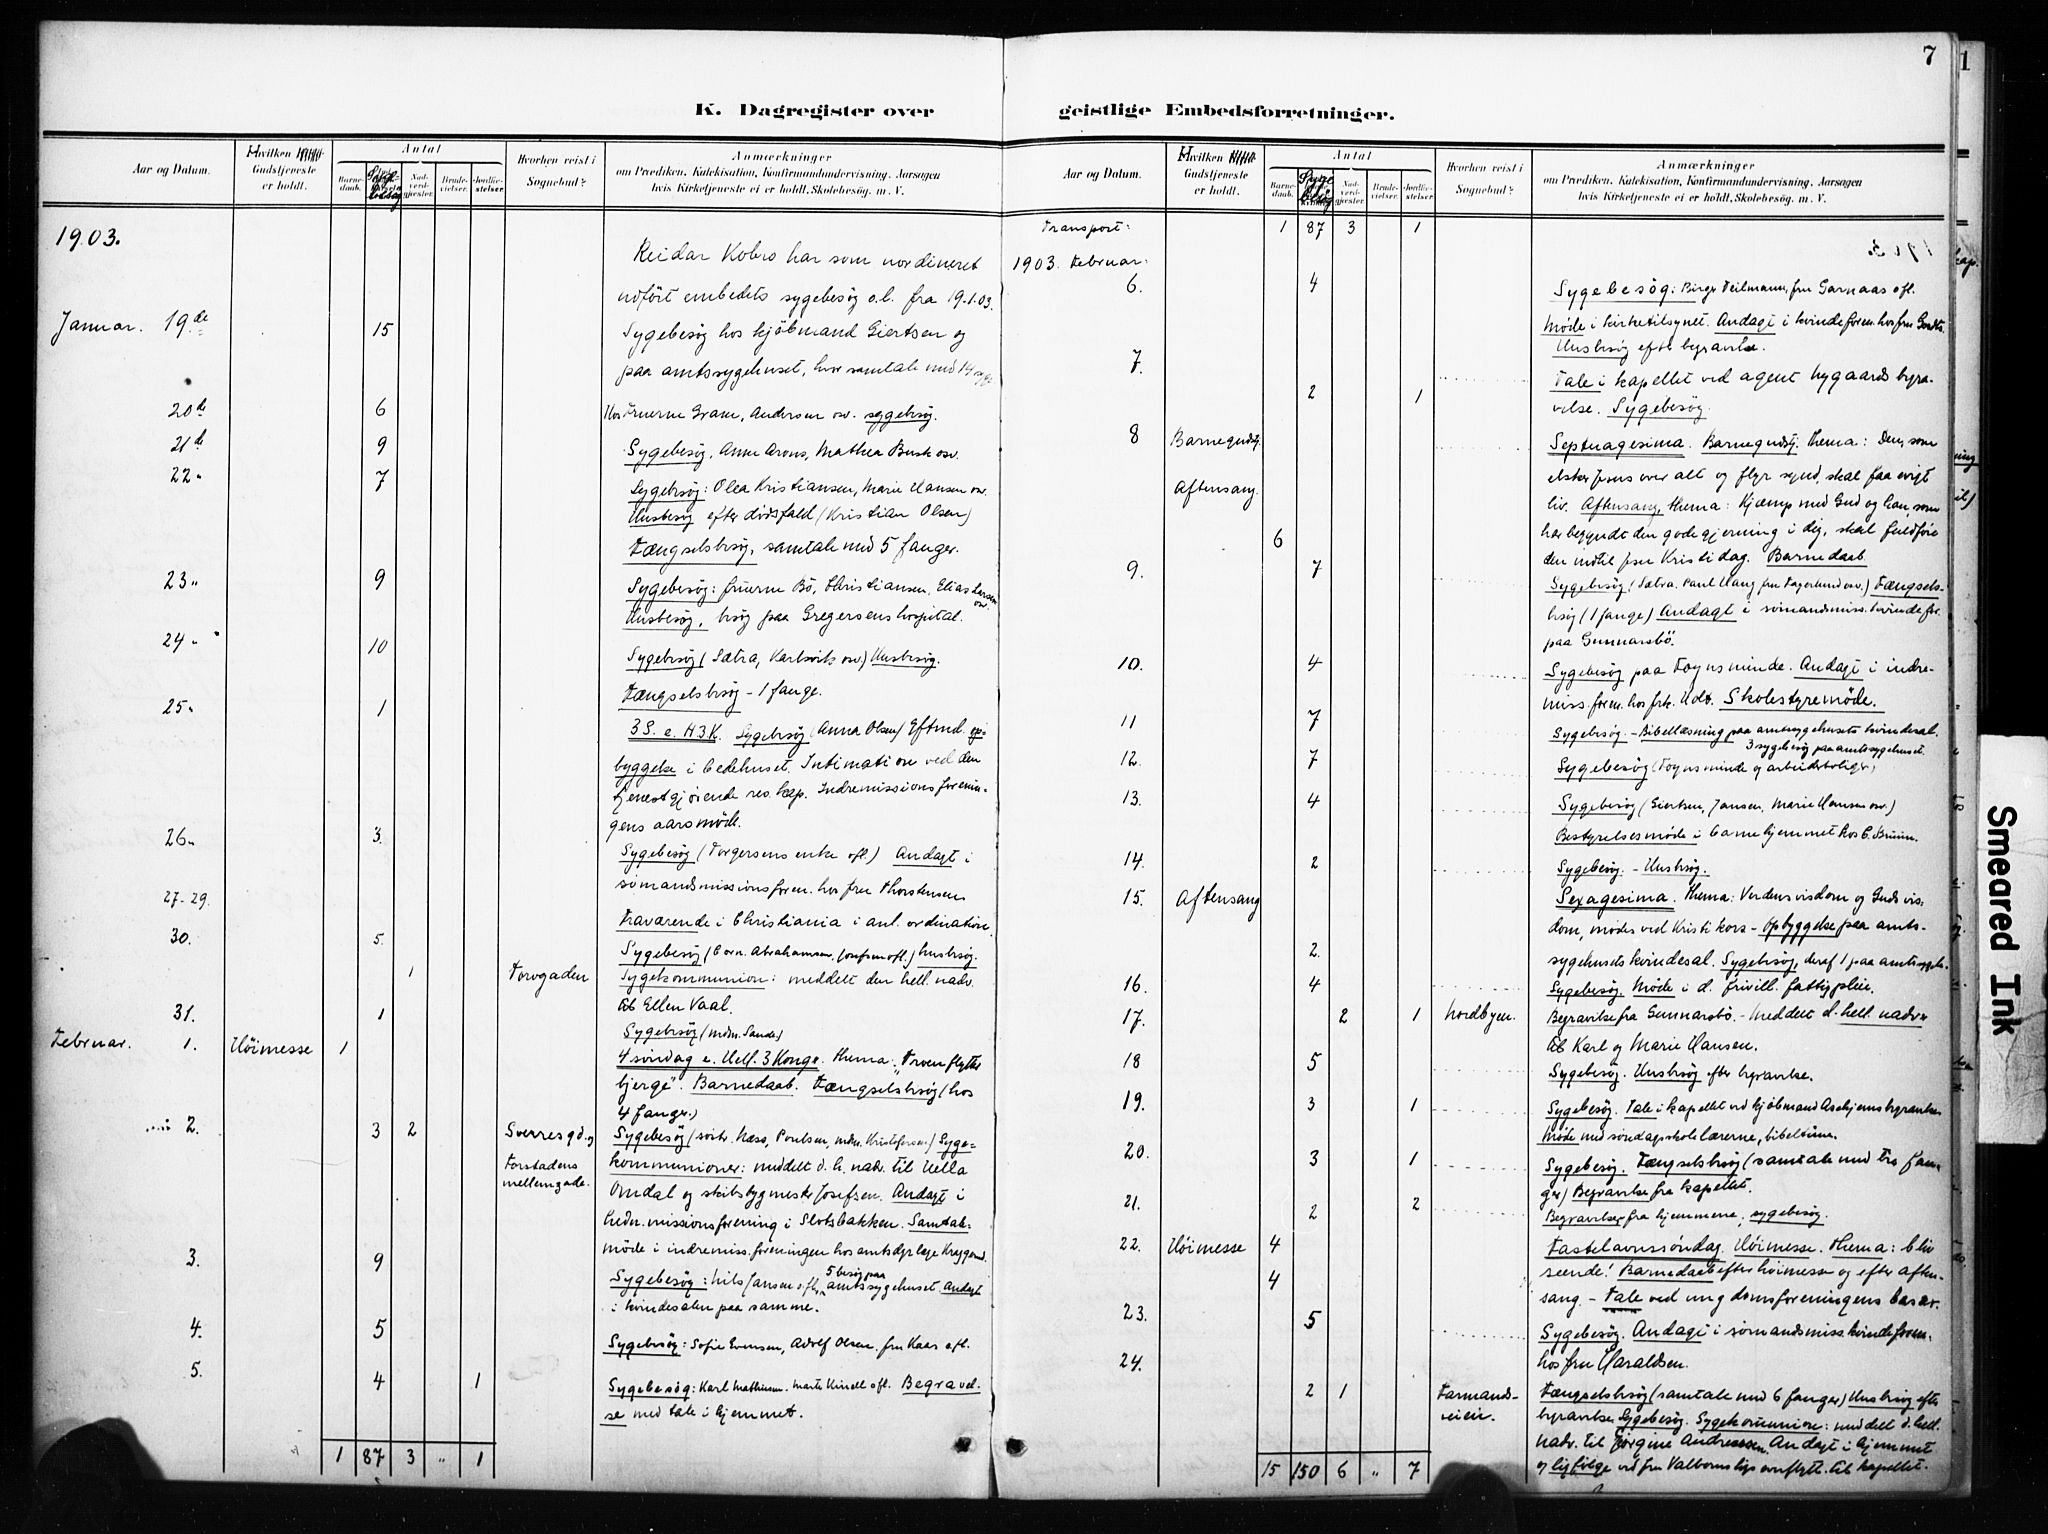 7
K. Dagregister over
Aar og Datum.
Hvilken
Gudstjeneste
er holdt.
Antal
Barne-
daab.
Syge
besög
Nad-
verd-
gjester.
Brude-
vielser.
Jordfæ-
stelser.
Hvorhen reist i
Sognebud?
Anmærkninger
om Prædiken, Katekisation, Konfirmandundervisning, Aarsagen
hvis Kirketjeneste ei er holdt, Skolebesög. m. V.
1903.
Reidar Kobro har som uordineret
udført embedets sygebesøg o.l. fra 19.1.03.
Januar. 19de 15 Sygebesøg hos kjøbmand Giertsen og
paa amtssygehuset, hvor samtale med 14 syge
20de 6 Hos Fruerne Gram, Andersen osv. sygebesøg.
21de 9 Sygebesøg, Anne Arons, Mathea Busk osv.
22 " 7 Sygebesøg: Olea Kristiansen, Marie Hansen osv.
Husbesøg efter dødsfald (Kristian Olsen)
Fængselsbesøg, samtale med 5 fanger.
23 " 9 Sygebesøg: fruerne Bö, Christiansen, Elias Larsen osv.
Husbesøg, besøg paa Gregersens hospital.
24 " 10 Sygebesøg (Sætra, Karlsvik osv) Husbesøg.
Fængselsbesøg - 1 fange.
25 " 1 3 S. e. H.3.K. Sygebesøg (Anna Olsen) Eftmd. op-
byggelse i bedehuset. Intimation ved den
tjenestgjørende res. kap. Indremissionsforenin-
gens aarsmöde.
26 " 3. Sygebesøg (Torgersens enke ofl.) Andagt i
sømandsmissionsforen. hos fru Thorstensen
27-29. Fraværende i Christiania i anl. ordination.
30. 5. Sygebesøg (Corn. Abrahamsen, Josefsen ofl.) husbesøg.
1 Torvgaden Sygekommunion: meddelt den hell. nadv.
til Ellen Vaal.
31. 1 Sygebesøg (mdm. Sande)
Februar. 1. Höimesse 1 4 søndag e. Hell. 3 Konge. Thema: "Troen flytter
bjerge". Barnedaab. Fængselsbesøg (hos
4 fanger.)
2. 3 2 Sverresgd. og Sygebesøg (svitr. Næss, Poulsen, mdm. Kristofersen) Syge-
Forstadens kommunioner: meddelt d. h. nadv. til Hella
mellemgade. Omdal og skibsbygmester Josefsen. Andagt i
hedn. missionsforening i Slotsbakken. Samtale-
möde i indremiss. foreningen hos amtsdyrlæge
3. 9 Sygebesøg: Nils Jansen ofl., 5 besøg paa amtssygehuset. Andagt
i kvindesalen paa samme.
4. 5 Sygebesøg: Sofie Evensen, Adolf Olsen, fru Kaas ofl.
5. 4 1 Sygebesøg: Karl Mathisen, Marte Kinell ofl. Begravel-
se med tale i hjemmet.
1 87 3 " 1
geistlige Embedsforretninger.
Aar og Datum.
Hvilken
Gudstjeneste
er holdt.
Antal
Barne-
daab.
Syge
besög
Nad-
verd-
gjester.
Brude-
vielser.
Jordfæ-
stelser.
Hvorhen reist i
Sognebud?
Anmærkninger
om Prædiken, Katekisation, Konfirmandundervisning, Aarsagen
hvis Kirketjeneste ei er holdt, Skolebesög. m. V.
Transport: 1 87 3 1
1903. Februar.
6. 4 Sygebesøg: Birger Veilmann, fru Garnaas ofl.
Møde i kirketilsynet. Andagt i kvindeforen. hos fru
Husbesøg efter begravelse.
7. 2 1 Tale i kapellet ved agent Nygaards begra-
velse. Sygebesøg.
8 Barnegudstj. Septuagesima. Barnegudstj. Thema: Den, som
elsker Jesus over alt og flyr synd, skal faa evigt
Aftensang. liv. Aftensang, Thema: Kjæmp med Gud og han, som
har begyndt den gode gjerning i dig, skal fuldføre
6 den indtil Jesu Kristi dag. Barnedaab
9. 7 Sygebesøg (Sætra, Paul Haug, fru Fagerlund osv.) Fængsels-
besøg (1 fange) Andagt i sømandsmiss. kvindefor.
paa Gunnarsbö.
10. 4 Sygebesøg paa Foynsminde. Andagt i indre-
miss. foren. hos frk. Udt. Skolestyremöde.
11 7 Sygebesøg. - Bibellæsning paa amtssygehusets kvindesal.
3 sygebesøg paa amtssygehuset.
12. 7 Sygebesøg (Foynsminde og arbeiderboliger)
13. 4 Sygebesøg (Giertsen, Jansen, Marie Hansen osv.)
Bestyrelsesmøde i barnehjemmet hos C. Bruun.
14. 2 Sygebesøg. - Husbesøg.
15. Aftensang Sexagesima. Thema: Verdens visdom og Guds vis-
dom, mødes ved Kristi kors - Opbyggelse paa amts-
2. sygehusets kvindesal. Sygebesøg, deraf 1 paa amtssygeh.
16. 4 Sygebesøg. Møde i d. frivill. fattigpleie.
17. 2 1 Nordbyen. Begravelse fra Gunnarsbö. - Meddelt d. hell. nadv.
til Karl og Marie Hansen.
18 5 Sygebesøg. Husbesøg efter begravelse.
19. 3 1 Sygebesøg. Tale i kapellet ved kjøbmand Aschjems begravelse.
Møde med søndagsskolelærerne, bibeltime.
20. 3 1 Sygebesøg. Fængselsbesøg (samtale med tre fan-
ger) Begravelse fra kapellet.
21. 2 2 Begravelser fra hjemmene, sygebesøg.
22. Höimesse 4 Fastelavnssøndag. Höimesse. Thema: bliv
4 seende! Barnedaab efter höimesse og efter aften-
sang. - Tale ved ungdomsforeningens basar.
23. 5 Sygebesøg. Andagt i sømandsmiss. kvindeforen.
hos fru Haraldsen.
24. 2 1 Farmands- Fængselsbesøg (samtale med 6 fanger) Husbesøg efter
veien. begravelse. Sygebesøg. Sygekommunion: meddelt d. hell.
nadv. til Jörgine Andreassen. Andagt i hjemmet
og ligfölge ved fru Valborns ligs overflytt. til kapellet.
15 150 6 " 7
Smeared Ink